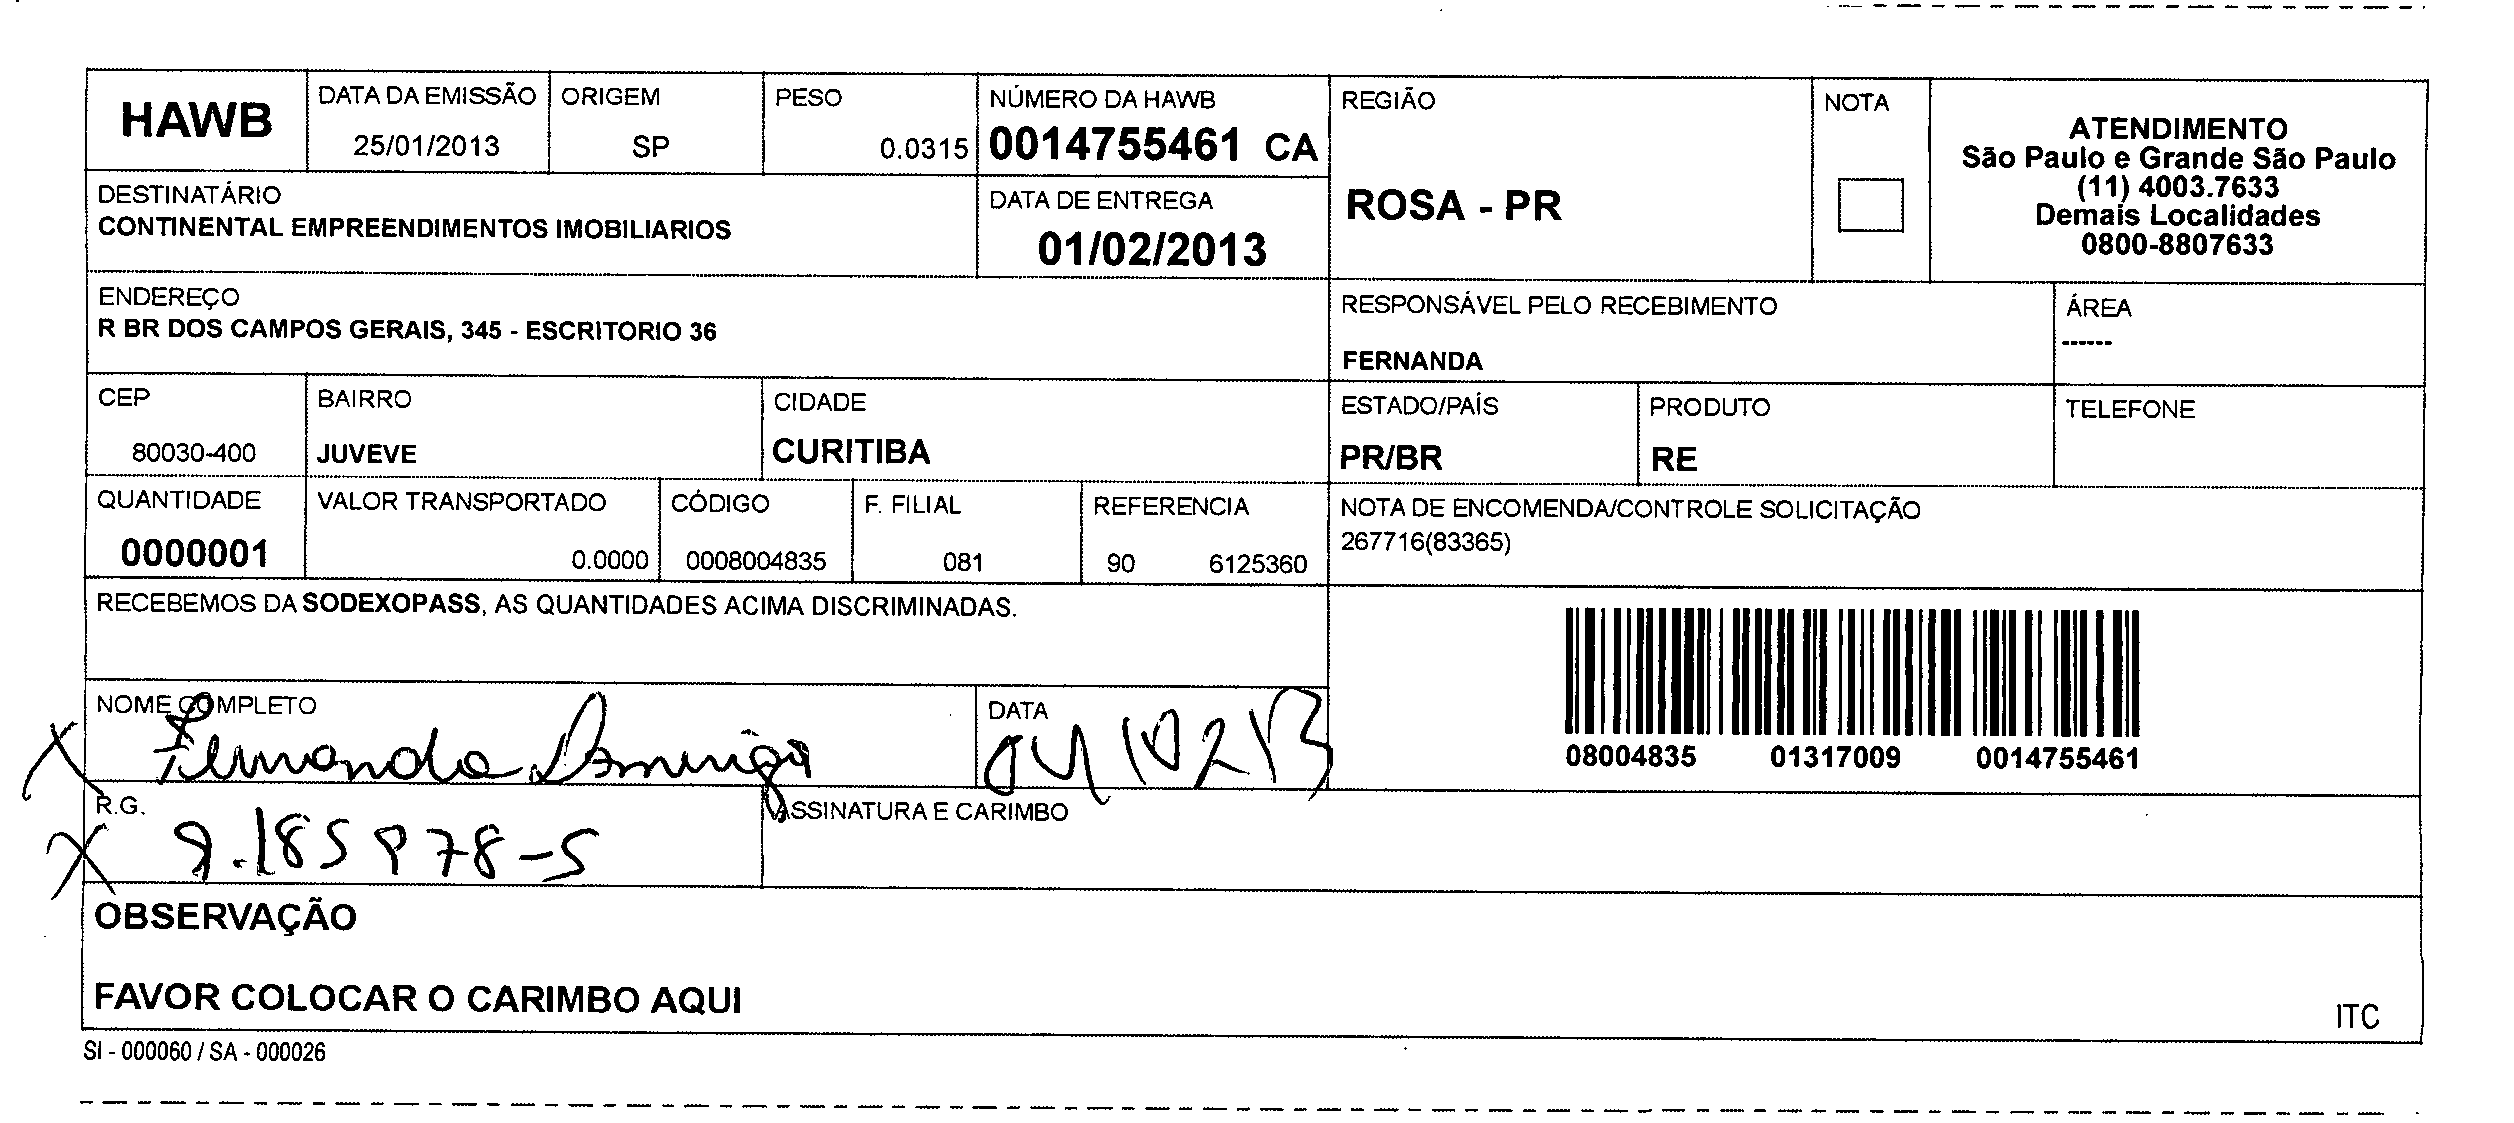 HAWB
DATA DA EMISSÃO
25/01/2013
ORIGEM
SP
PESO
0.0315
NÚMERO DA HAWB
0014755461 CA
REGIÃO
ROSA - PR
NOTA
ATENDIMENTO
São Paulo e Grande São Paulo
(11) 4003.7633
Demais Localidades
0800-8807633
DESTINATÁRIO
CONTINENTAL EMPREENDIMENTOS IMOBILIARIOS
DATA DE ENTREGA
01/02/2013
ENDEREÇO
R BR DOS CAMPOS GERAIS, 345 - ESCRITORIO 36
RESPONSÁVEL PELO RECEBIMENTO
FERNANDA
ÁREA
------
CEP
80030-400
BAIRRO
JUVEVE
CIDADE
CURITIBA
ESTADO/PAÍS
PR/BR
PRODUTO
RE
TELEFONE
QUANTIDADE
0000001
VALOR TRANSPORTADO
0.0000
CÓDIGO
0008004835
F. FILIAL
081
REFERENCIA
90 6125360
NOTA DE ENCOMENDA/CONTROLE SOLICITAÇÃO
267716(83365)
RECEBEMOS DA SODEXOPASS, AS QUANTIDADES ACIMA DISCRIMINADAS.
08004835 01317009 0014755461
NOME COMPLETO
X Fernanda
DATA
04/02/13
R.G.
X 9.185978-5
ASSINATURA E CARIMBO
OBSERVAÇÃO
FAVOR COLOCAR O CARIMBO AQUI
ITC
SI - 000060 / SA - 000026